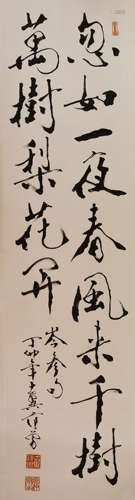 忽如一夜春風来千樹
萬樹梨花開
岑參句
丁卯年